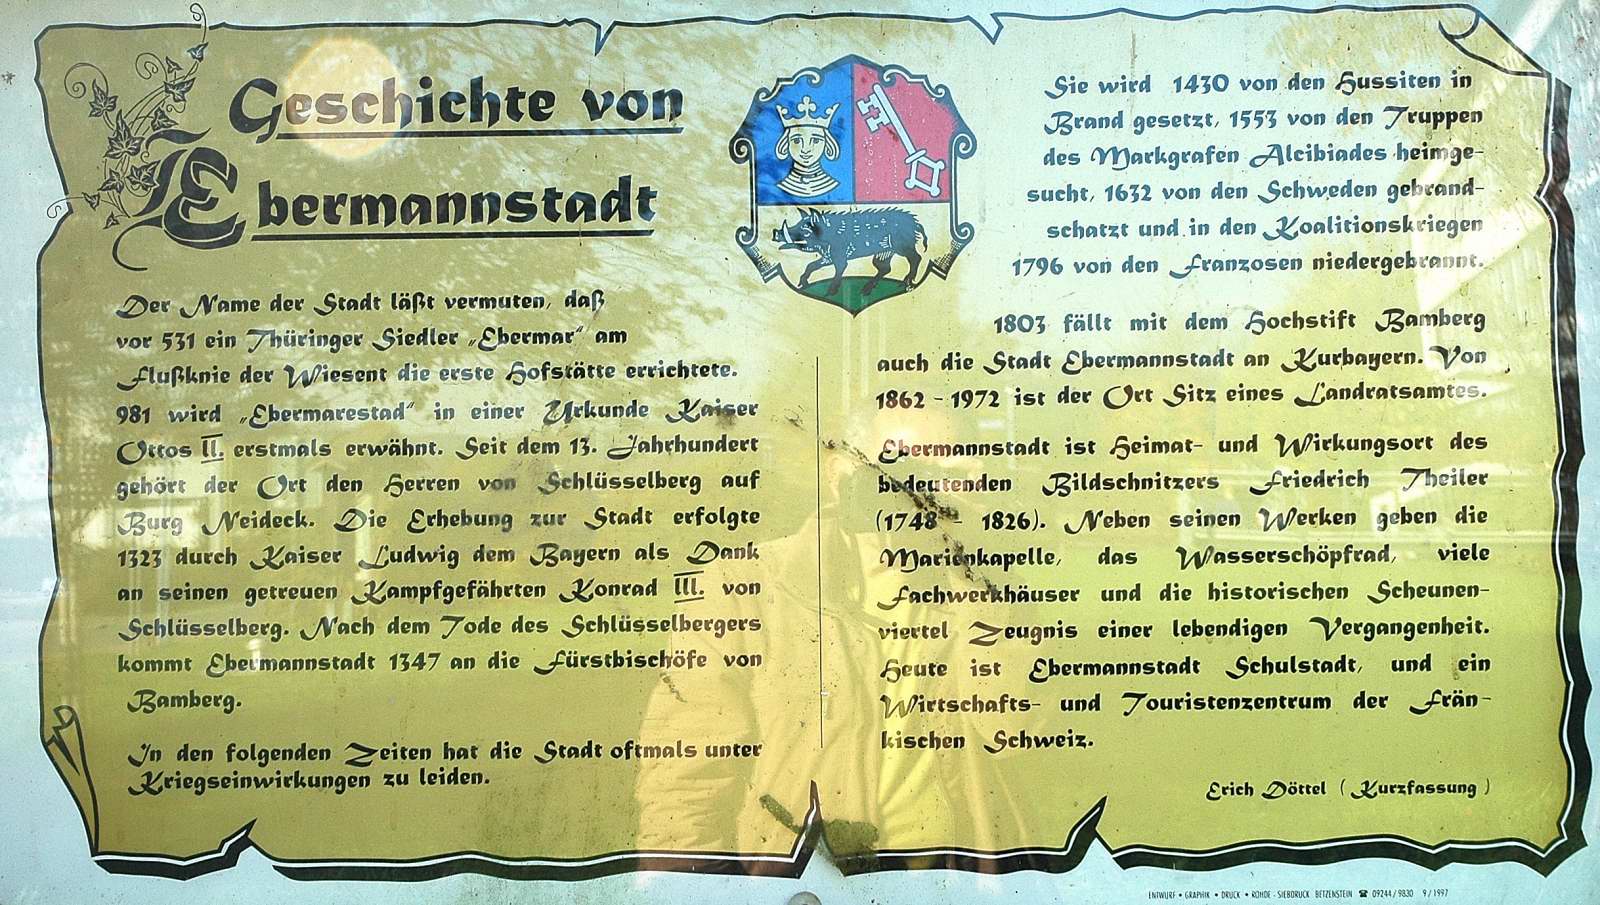 Geschichte von
Ebermannstadt
Der Name der Stadt läßt vermuten, daß
vor 531 ein Thüringer Siedler „Ebermar“ am
Flußknie der Wiesent die erste Hofstätte errichtete.
981 wird „Ebermarestad“ in einer Urkunde Kaiser
Ottos II. erstmals erwähnt. Seit dem 13. Jahrhundert
gehört der Ort den Herren von Schlüsselberg auf
Burg Neideck. Die Erhebung zur Stadt erfolgte
1323 durch Kaiser Ludwig dem Bayern als Dank
an seinen getreuen Kampfgefährten Konrad III. von
Schlüsselberg. Nach dem Tode des Schlüsselbergers
kommt Ebermannstadt 1347 an die Fürstbischöfe von
Bamberg.
In den folgenden Zeiten hat die Stadt oftmals unter
Kriegseinwirkungen zu leiden.
Sie wird 1430 von den Hussiten in
Brand gesetzt, 1553 von den Truppen
des Markgrafen Alcibiades heimge-
sucht, 1632 von den Schweden gebrand-
schatzt und in den Koalitionskriegen
1796 von den Franzosen niedergebrannt.
1803 fällt mit dem Hochstift Bamberg
auch die Stadt Ebermannstadt an Kurbayern. Von
1862 - 1972 ist der Ort Sitz eines Landratsamtes.
Ebermannstadt ist Heimat- und Wirkungsort des
bedeutenden Bildschnitzers Friedrich Theiler
(1748 - 1826). Neben seinen Werken geben die
Marienkapelle, das Wasserschöpfrad, viele
Fachwerkhäuser und die historischen Scheunen-
viertel Zeugnis einer lebendigen Vergangenheit.
Heute ist Ebermannstadt Schulstadt, und ein
Wirtschafts- und Touristenzentrum der Frän-
kischen Schweiz.
Erich Döttel (Kurzfassung)
ENTWURF • GRAPHIK • DRUCK • ROHDE - SIEBDRUCK BETZENSTEIN ☎ 09244/9830 9/1997